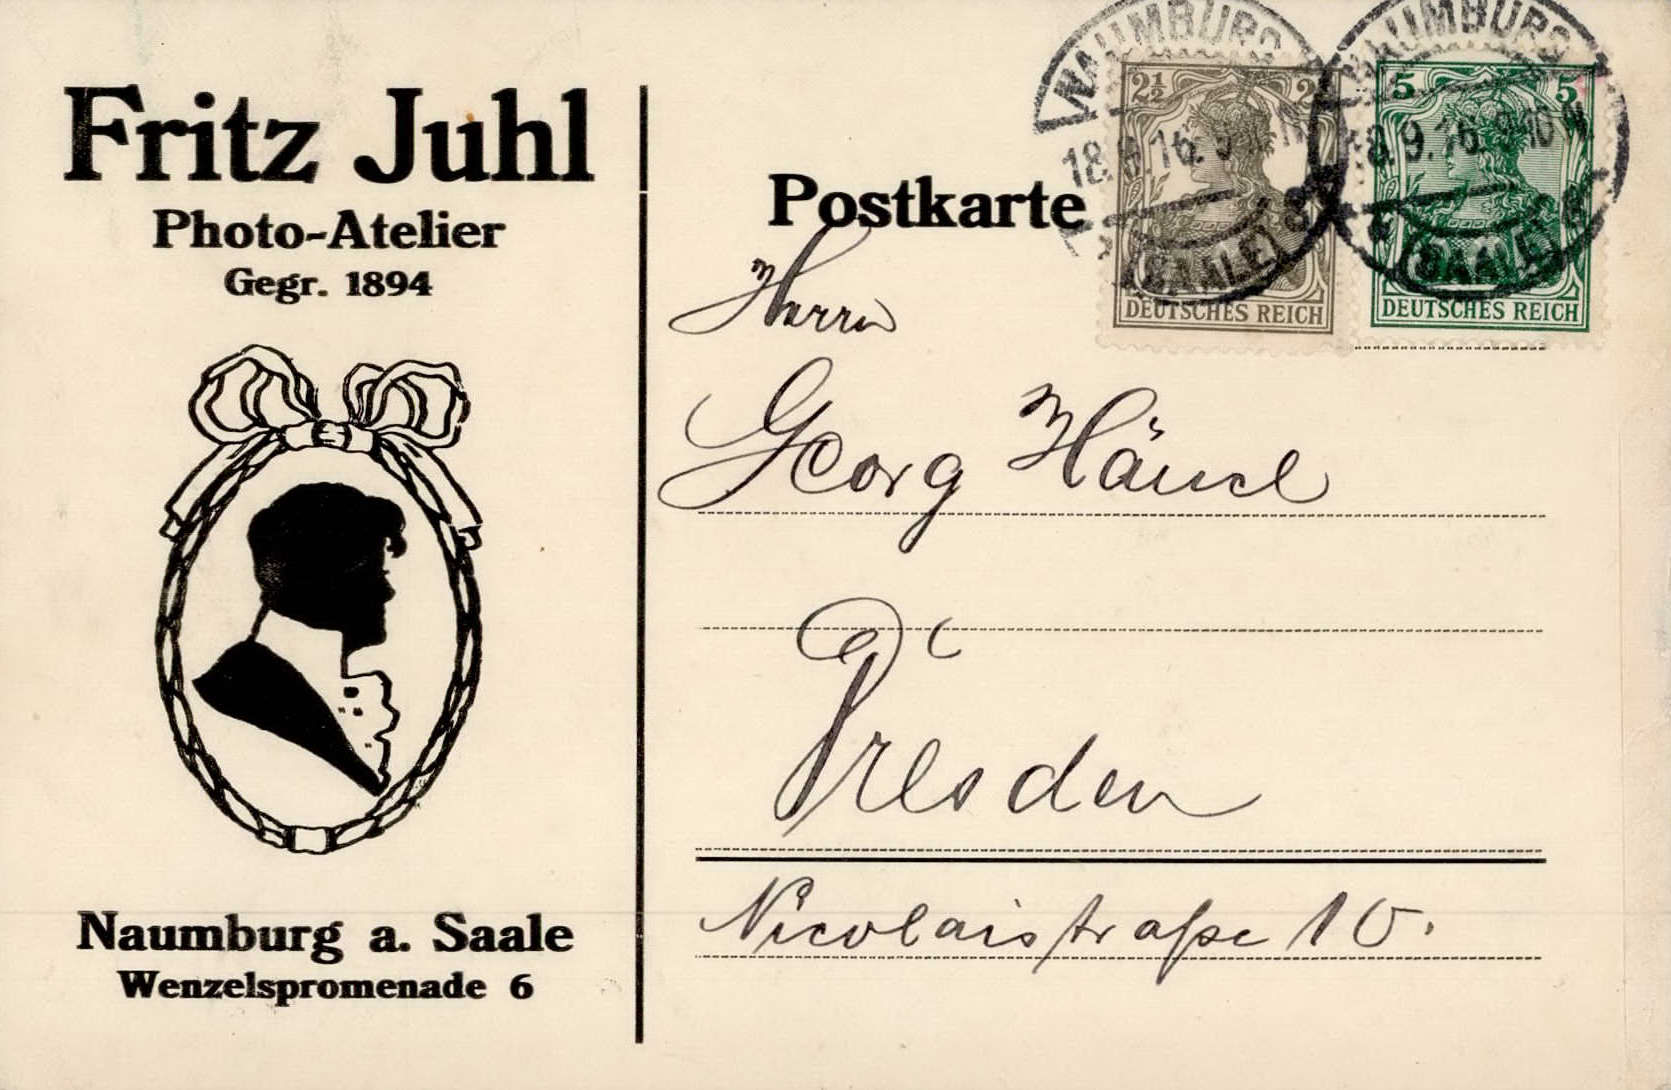 Fritz Juhl
Photo-Atelier
Gegr. 1894
Naumburg a. Saale
Wenzelspromenade 6
Postkarte
NAUMBURG
18.9.16. 9
(SAALE)
2½ 2
DEUTSCHES REICH
NAUMBURG
18.9.16. 9-10 N
(SAALE)
5 5
DEUTSCHES REICH
Herrn
Georg Hänsel
Dresden
Nicolaistraße 10.